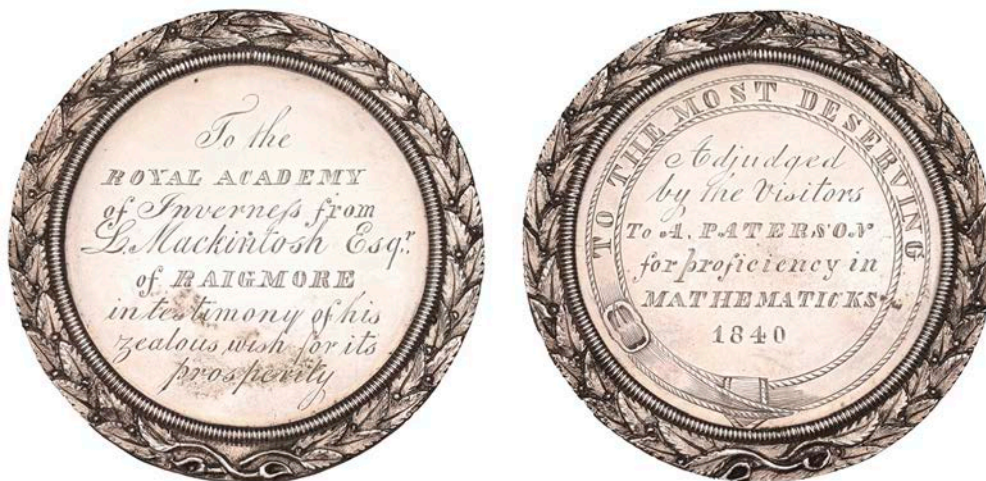 To the
ROYAL ACADEMY
of Inverneſs from
L. Mackintosh Esqr.
of RAIGMORE
in testimony of his
zealous wish for its
prosperity
TO THE MOST DESERVING
Adjudged
by the Visitors
To A. PATERSON
for proficiency in
MATHEMATICKS
1840